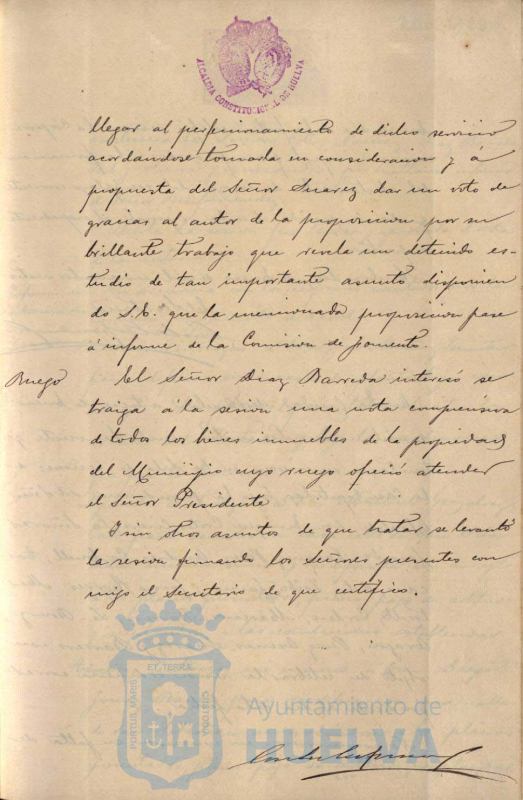 ALCALDIA CONSTITUCIONAL DE HUELVA
llegar al perfeccionamiento de dicho servicio
acordándose tomarla en consideracion y á
propuesta del Señor Suarez dar un voto de
gracias al autor de la proposicion por su
brillante trabajo que revela un detenido es-
tudio de tan importante asunto disponien
do S.E. que la mencionada proposicion pase
á informe de la Comision de fomento.
Ruego
El Señor Diaz Barreda interesó se
traiga á la sesion una nota comprensiva
de todos los bienes inmuebles de la propiedad
del Municipio cuyo ruego ofreció atender
el Señor Presidente
I sin otros asuntos de que tratar se levantó
la sesion firmando los Señores presentes con
migo el Secretario de que certifico.
PORTUS MARIS ET TERRAE CUSTODIA
Ayuntamiento de
HUELVA